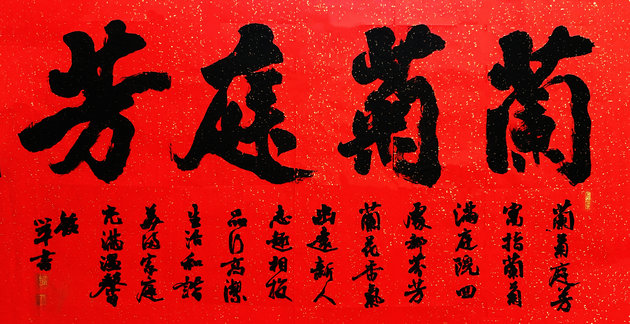 蘭菊庭芳
蘭菊庭芳
寓指蘭菊
滿庭院四
處都芬芳
蘭花香氣
幽遠新人
志趣相投
品行高潔
生活和諧
美滿家庭
充滿溫馨
書